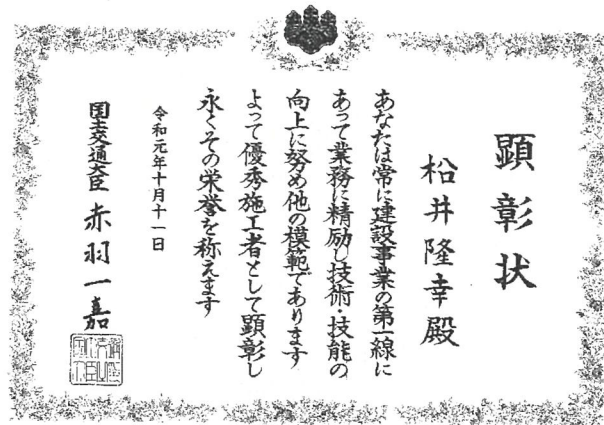 顕彰状
松井隆幸殿
あなたは常に建設事業の第一線に
あって業務に精励し技術・技能の
向上に努め他の模範であります
よって優秀施工者として顕彰し
永くその栄誉を称えます
令和元年十月十一日
国土交通大臣 赤羽一嘉